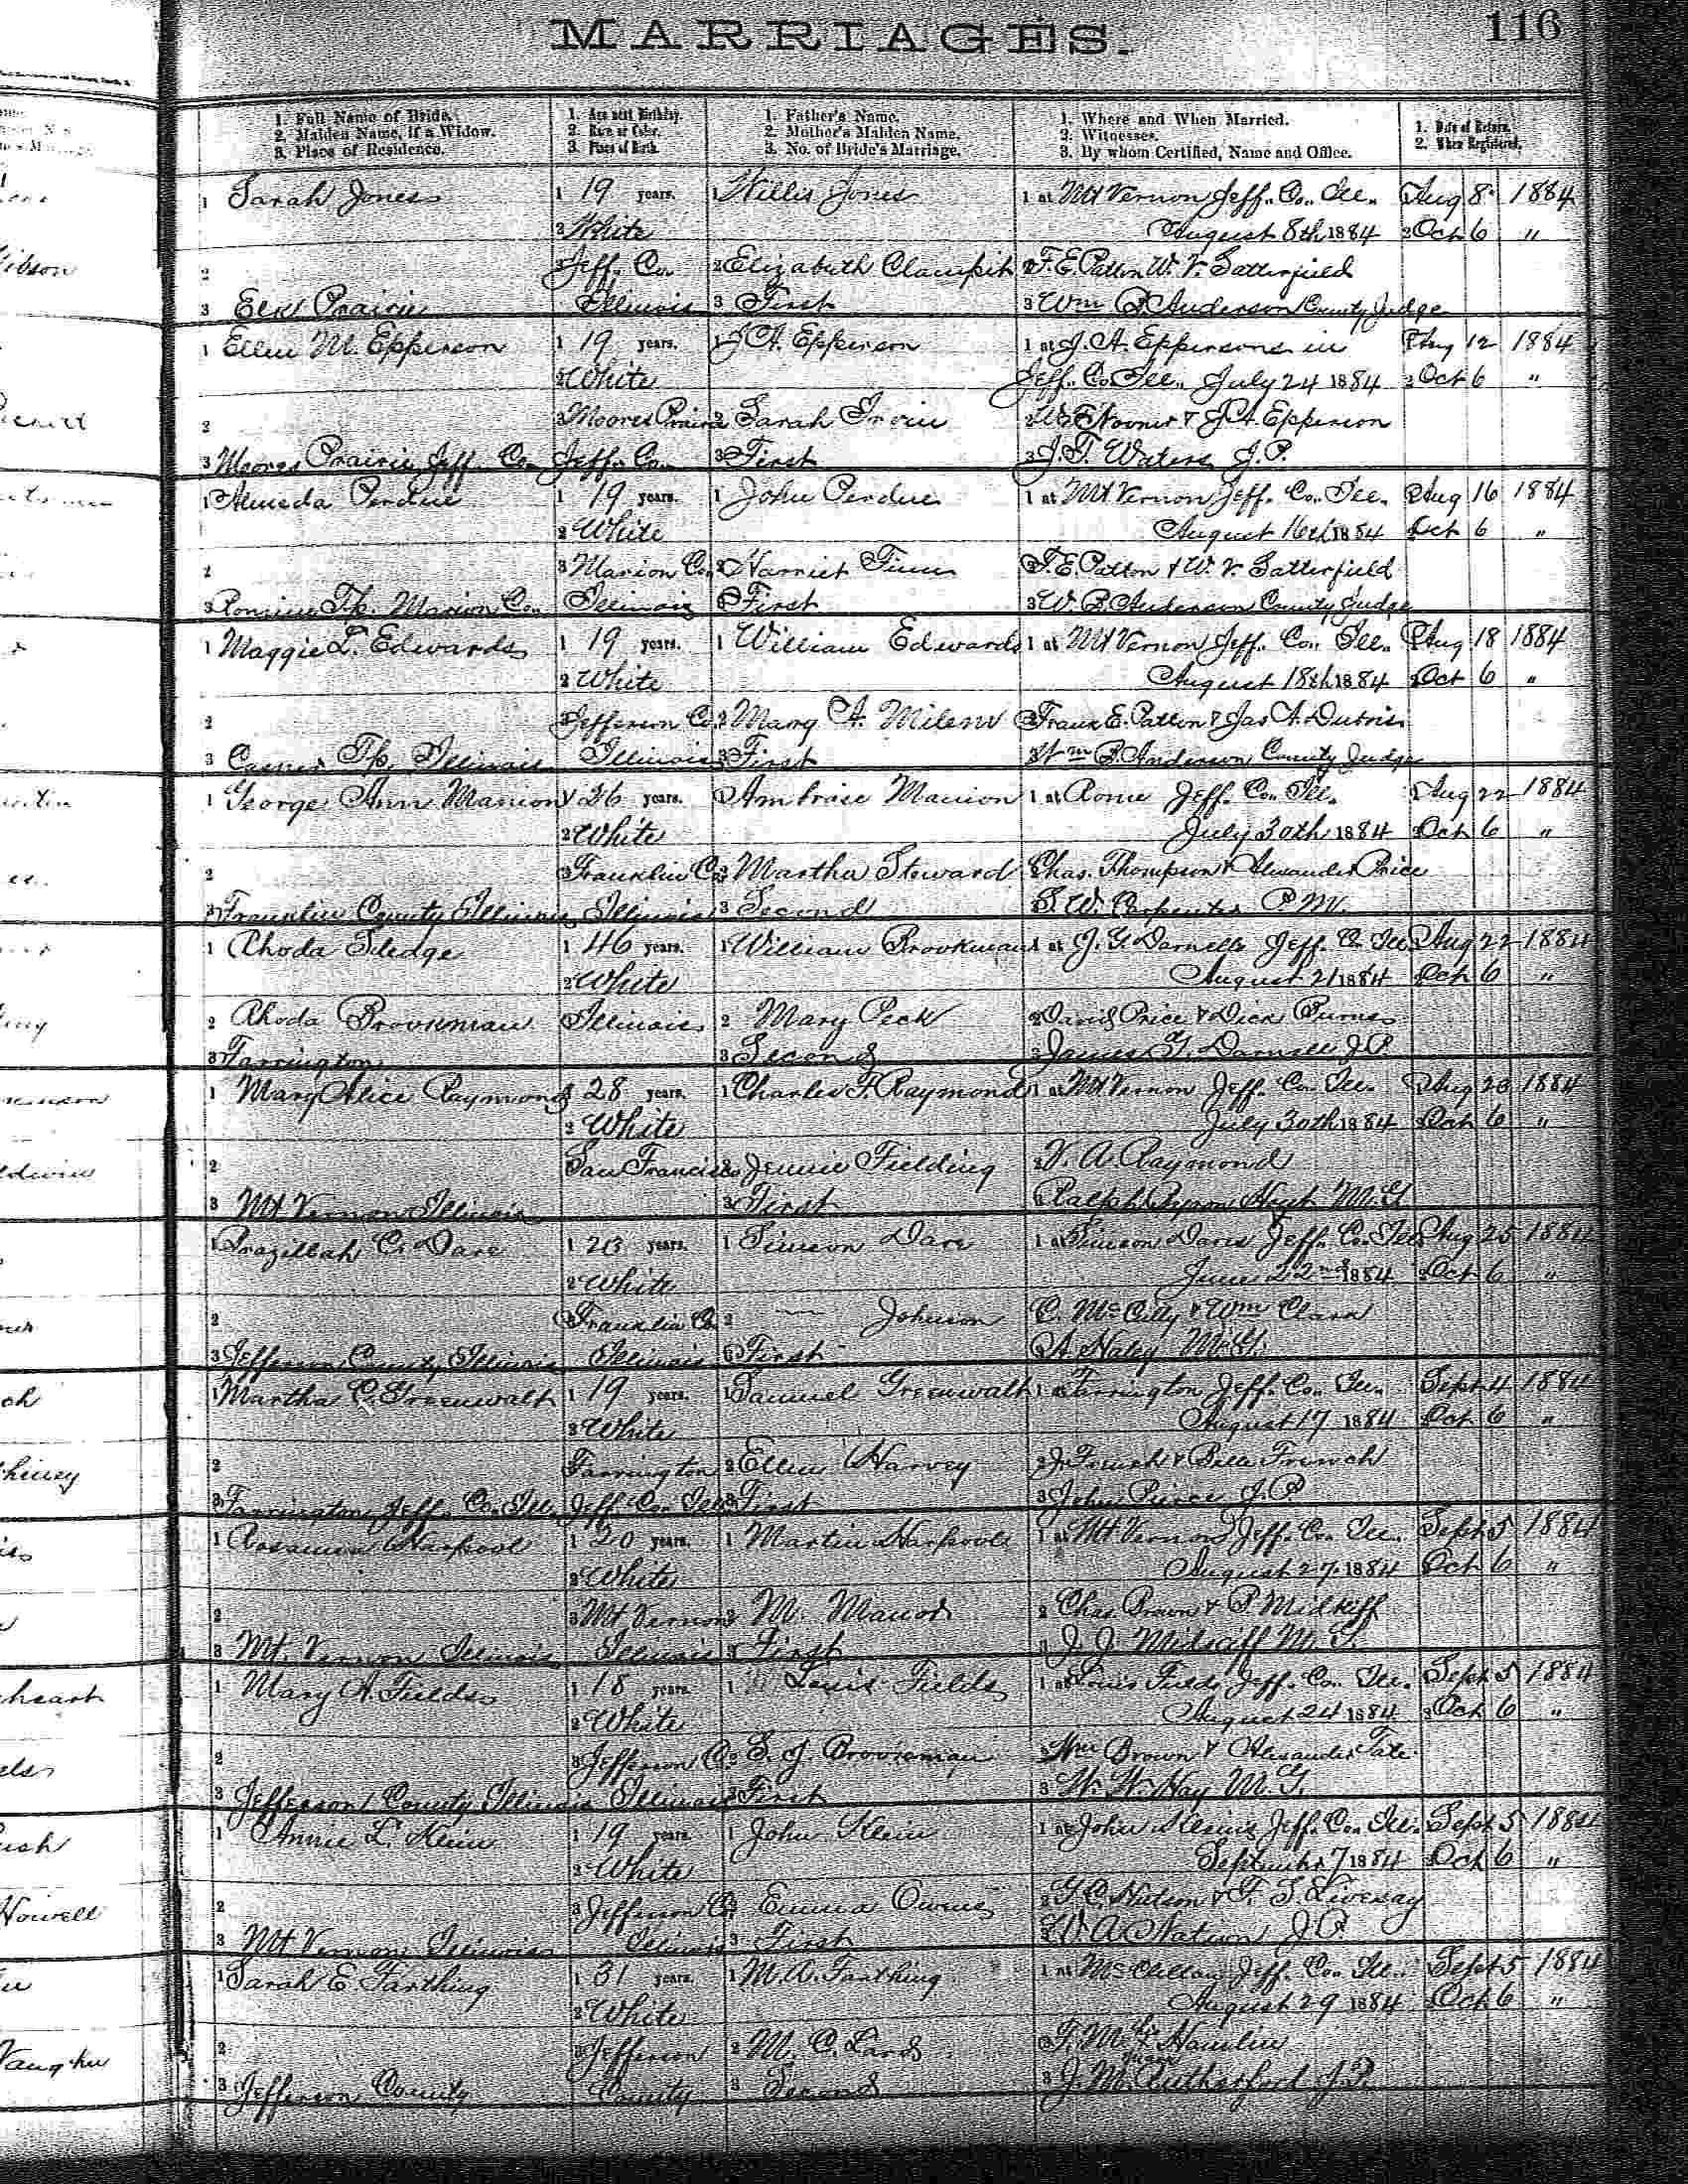 MARRIAGES.
116
1. Full Name of Bride.
2. Maiden Name, if a Widow.
3. Place of Residence.
1. Age next Birthday.
2. Race or Color.
3. Place of Birth.
1. Father's Name.
2. Mother's Maiden Name.
3. No. of Bride's Marriage.
1. Where and When Married.
2. Witnesses.
3. By whom Certified, Name and Office.
1. Date of Return.
2. When Registered.
1 Sarah Jones 1 19 years. 1 Willis Jones 1 at Mt Vernon Jeff. Co. Ill. Aug 8 1884
2 White August 8th 1884 2 Oct 6 "
2 3 Jeff. Co. 2 Elizabeth Clampit 2 F. E. Patton W. V. Satterfield
3 Elk Prairie Illinois 3 First 3 Wm B. Anderson County Judge
1 Ellen M. Epperson 1 19 years. 1 J A. Epperson 1 at J. A. Eppersons in Aug 12 1884
2 White Jeff. Co. Ill. July 24 1884 2 Oct 6 "
2 3 Moores Prairie 2 Sarah Irvin 2 & J. A. Epperson
3 Moores Prairie Jeff. Co. Jeff. Co. 3 First 3 J. T. Waters J. P.
1 Almeda Perdue 1 19 years. 1 John Perdue 1 at Mt Vernon Jeff. Co. Ill. Aug 16 1884
2 White August 16th 1884 Oct 6 "
2 3 Marion Co. 2 Harriet 2 F. E. Patton & W. V. Satterfield
3 Tp. Marion Co. Illinois 3 First 3 W. B. Anderson County Judge
1 Maggie L. Edwards 1 19 years. 1 William Edwards 1 at Mt Vernon Jeff. Co. Ill. Aug 18 1884
2 White August 18th 1884 2 Oct 6 "
2 3 Jefferson Co. 2 Mary A. 2 Frank E. Patton & Jas A.
3 Casner Tp. Illinois Illinois 3 First 3 Wm B. Anderson County Judge
1 George Ann Manion 1 26 years. 1 Ambrose Manion 1 at Rome Jeff. Co. Ill. Aug 22 1884
2 White July 30th 1884 2 Oct 6 "
2 3 Franklin Co. 2 Martha Steward Chas. Thompson & Alexander Price
3 Franklin County Illinois Illinois 3 Second S. W. Carpenter
1 Rhoda Sledge 1 46 years. 1 William 1 at J. G. Darnells Jeff. Co. Ill. Aug 22 1884
2 White August 21 1884 Oct 6 "
2 Rhoda Illinois 2 Mary Peck 2 David Price & Dick
3 Farrington 3 Second 3 James G. Darnell J. P.
1 Mary Alice Raymond 1 28 years. 1 Charles F. Raymond 1 at Mt. Vernon Jeff. Co. Ill. Aug 1884
2 White July 30th 1884 Oct 6 "
2 3 San Francisco 2 Jennie Fielding 2 V. A. Raymond
3 Mt Vernon Illinois 3 First Ralph Byron M. G.
1 C. Dare 1 23 years. 1 Simeon Dare 1 at Simeon Dares Jeff. Co. Ill. Aug 25 1884
2 White June 22nd 1884 2 Oct 6 "
2 Franklin Co. 2 — Johnson C. & Wm Clark
3 Jefferson County Illinois Illinois 3 First A. Haley M. G.
1 Martha C. Greenwalt 1 19 years. 1 Samuel Greenwalt 1 at Farrington Jeff. Co. Ill. Sept 4 1884
2 White August 17 1884 Oct 6 "
2 Farrington 2 Ellen Harvey 2 J. French & Belle French
3 Farrington Jeff. Co. Ill. Jeff. Co. Ill. 3 First 3 John Pierce J. P.
1 Harpool 1 20 years. 1 Martin Harpool 1 at Mt. Vernon Jeff. Co. Ill. Sept 5 1884
2 White August 27 1884 Oct 6 "
2 3 Mt Vernon 2 M. 2 Chas. Brown & P. Midkiff
3 Mt. Vernon Illinois Illinois 3 First 3 J. J. Midkiff M. G.
1 Mary A. Fields 1 18 years. 1 Louis Fields 1 at Louis Fields Jeff. Co. Ill. Sept 5 1884
2 White August 24 1884 2 Oct 6 "
2 3 Jefferson Co. 2 S. J. 2 Wm Brown & Alexander Tate
3 Jefferson County Illinois Illinois 3 First 3 W. W. Hay M. G.
1 Annie L. Klein 1 19 years. 1 John Klein 1 at John Kleins Jeff. Co. Ill. Sept 5 1884
2 White September 7 1884 Oct 6 "
2 3 Jefferson Co. 2 Emma Owens 2 & F. S. Livesay
3 Mt Vernon Illinois Illinois 3 First J. P.
1 Sarah E. Farthing 1 31 years. 1 M. A. Farthing 1 at McClellan Jeff. Co. Ill. Sept 5 1884
2 White August 29 1884 Oct 6 "
2 3 Jefferson 2 M. C. 2 Hamlin
3 Jefferson County County 3 Second 3 J. M. Rutherford J. P.